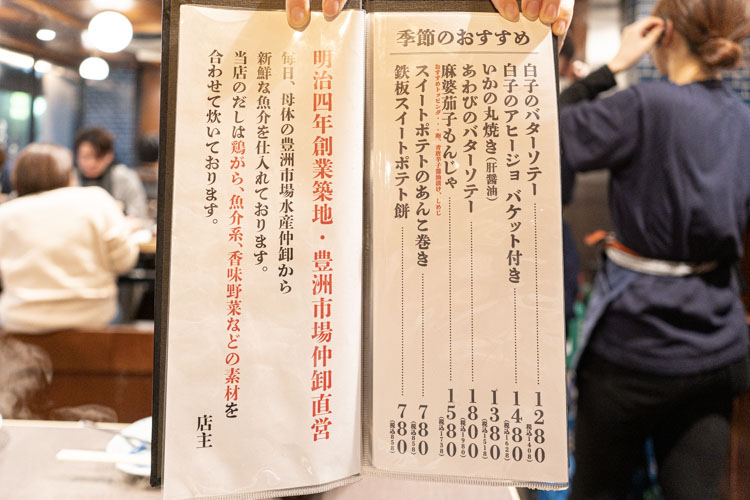 季節のおすすめ
白子のバターソテー 1280 (税込1408)
白子のアヒージョ バケット付き 1480 (税込1628)
いかの丸焼き(肝醤油) 1380 (税込1518)
あわびのバターソテー 1800 (税込1980)
麻婆茄子もんじゃ 1580 (税込1738)
スイートポテトのあんこ巻き 780 (税込858)
鉄板スイートポテト餅 780 (税込858)
明治四年創業築地・豊洲市場仲卸直営
毎日、母体の豊洲市場水産仲卸から
新鮮な魚介を仕入れております。
当店のだしは鶏がら、魚介系、香味野菜などの素材を
合わせて炊いております。
店主